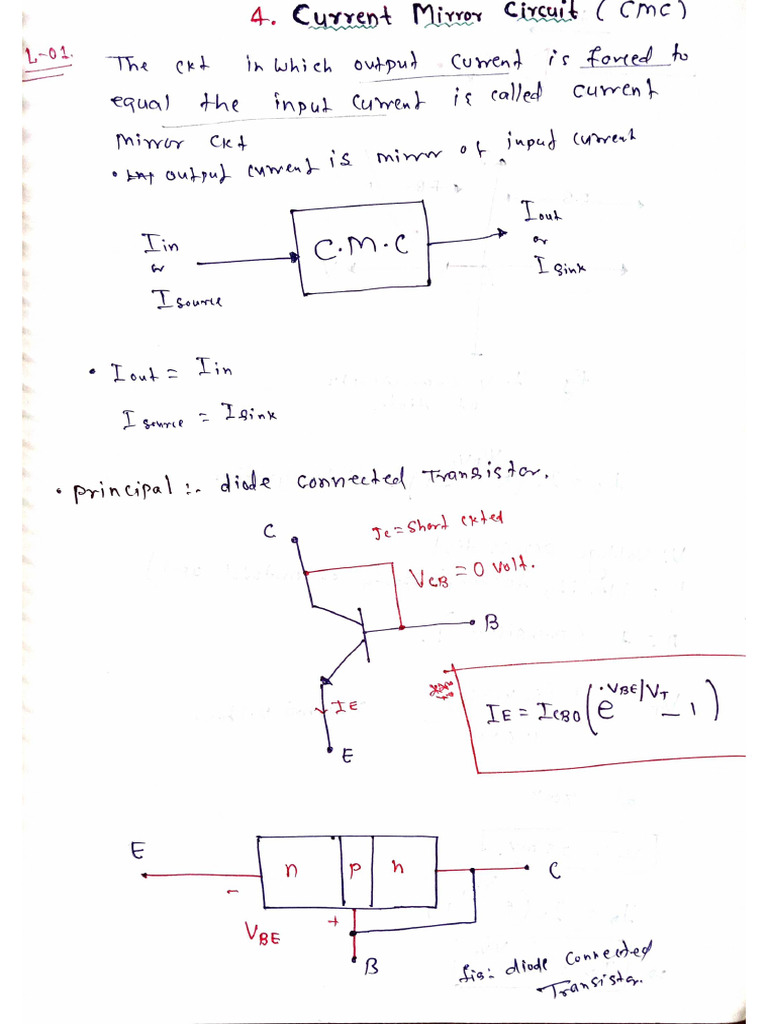 4. Current Mirror Circuit (CMC)
L-01.
The ckt in which output current is forced to
equal the input current is called current
mirror ckt
• output current is mirror of input current
Iin
or
Isource
C.M.C
Iout
or
Isink
• Iout = Iin
Isource = Isink
• principal :- diode connected Transistor.
C
Jc = Short ckted
VCB = 0 volt.
B
IE
E
IE = ICBO(e^VBE/VT - 1)
E
n p n
C
-
+
VBE
B
fig: diode connected
Transistor.